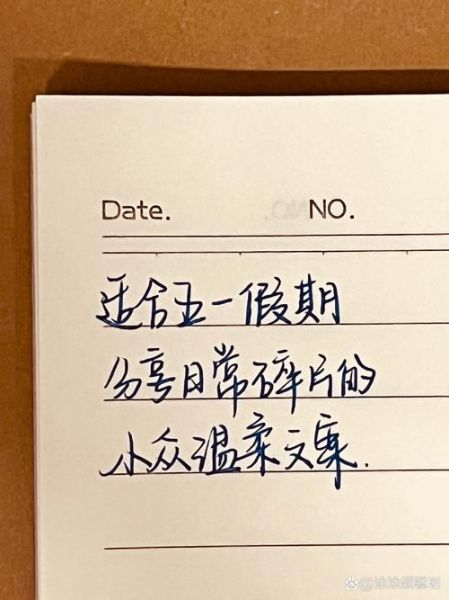 Date. NO.
适合五一假期
分享日常碎片的
小众温柔文案.